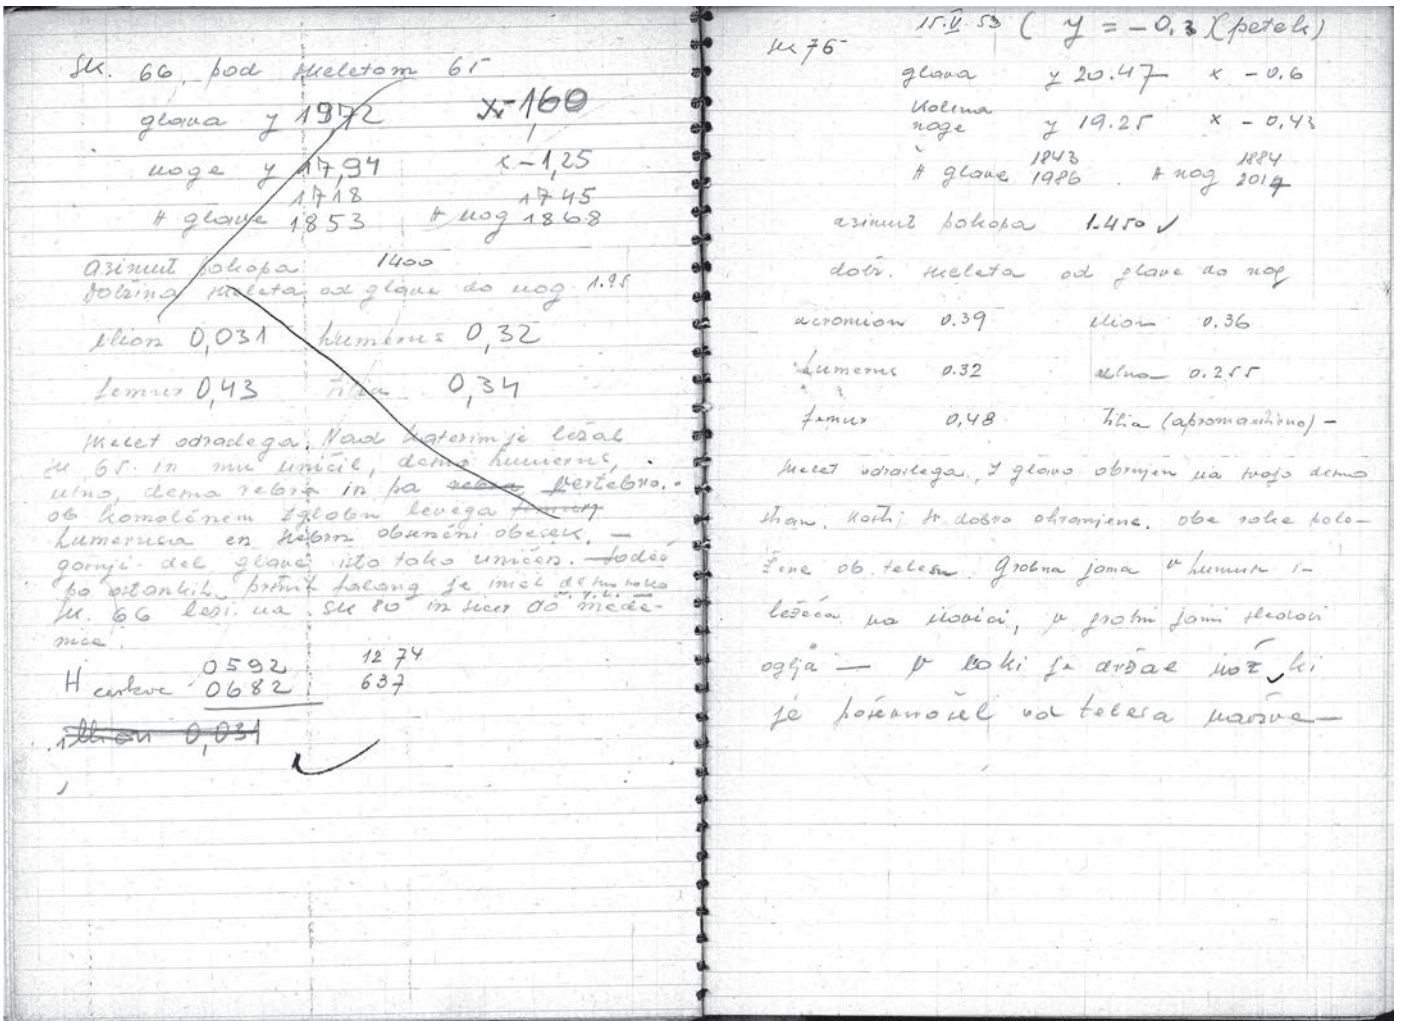 Sk. 66, pod skeletom 65
glava y 1972 x-1,60
noge y 17,94 x-1,25
1718 1745
H glave 1853 H nog 1868
azimut pokopa 1400
dolžina skeleta od glave do nog 1.95
ilion 0,031 humerus 0,32
femur 0,43 tibia 0,34
skelet odraslega. Nad katerim je ležal
sk 65. in mu uničil, desno humerus,
ulno, desna rebra in pa rebra vertebro.
ob komolčnem zglobu levega
humerusa en srebrn obsenčni obesek. —
gornji del glave isto tako uničen. Sodeč
po ostankih prstnih falang je imel desno roko
sk. 66 leži na sk 80 in sicer do mede-
nice.
0592 1274
H cerkve 0682 637
ilion 0,031
15.V.53 (y = -0.3) (petek)
sk 75
glava y 20.47 x - 0.6
kolena
noge y 19.25 x - 0,43
1843 1884
H glave 1986 H nog 2017
azimut pokopa 1.450 ✓
dolž. skeleta od glave do nog
acromion 0.39 ilion 0.36
humerus 0.32 ulna 0.255
femur 0,48 tibia (aproximativno) —
skelet odraslega, z glavo obrnjen na svojo desno
stran. Kosti so dobro ohranjene. obe roke polo-
žene ob telesu. Grobna jama v humusu i-
ležeča na ilovici, v grobni jami sledovi
oglja — v roki je držal nož, ki
je poševno šel od telesa navzve—